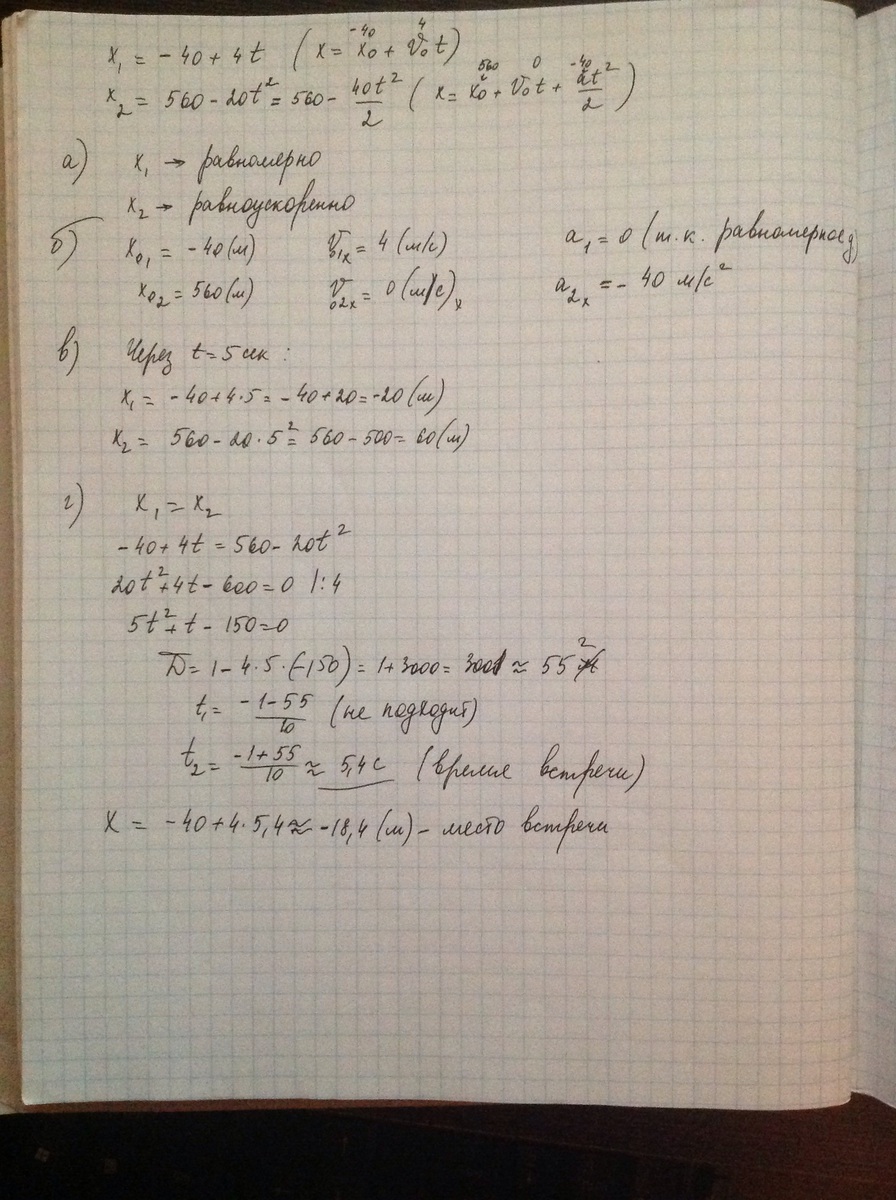 x₁ = -40 + 4t (x = x₀ + v₀t) -40 4
x₂ = 560 - 20t² = 560 - 40t²/2 (x = x₀ + v₀t + at²/2) 560 0 -40
а) x₁ → равномерно
x₂ → равноускоренно
б) x₀₁ = -40 (м) v₁ₓ = 4 (м/с) a₁ = 0 (т.к. равномерное д)
x₀₂ = 560 (м) v₀₂ₓ = 0 (м/с)ₓ a₂ₓ = - 40 м/с²
в) Через t = 5 сек :
x₁ = -40 + 4·5 = -40 + 20 = -20 (м)
x₂ = 560 - 20·5² = 560 - 500 = 60 (м)
г) x₁ = x₂
-40 + 4t = 560 - 20t²
20t² + 4t - 600 = 0 |:4
5t² + t - 150 = 0
D = 1 - 4·5·(-150) = 1 + 3000 = 3001 ≈ 55²
t₁ = -1-55/10 (не подходит)
t₂ = -1+55/10 ≈ 5,4 с (время встречи)
X = -40 + 4·5,4 ≈ -18,4 (м) - место встречи